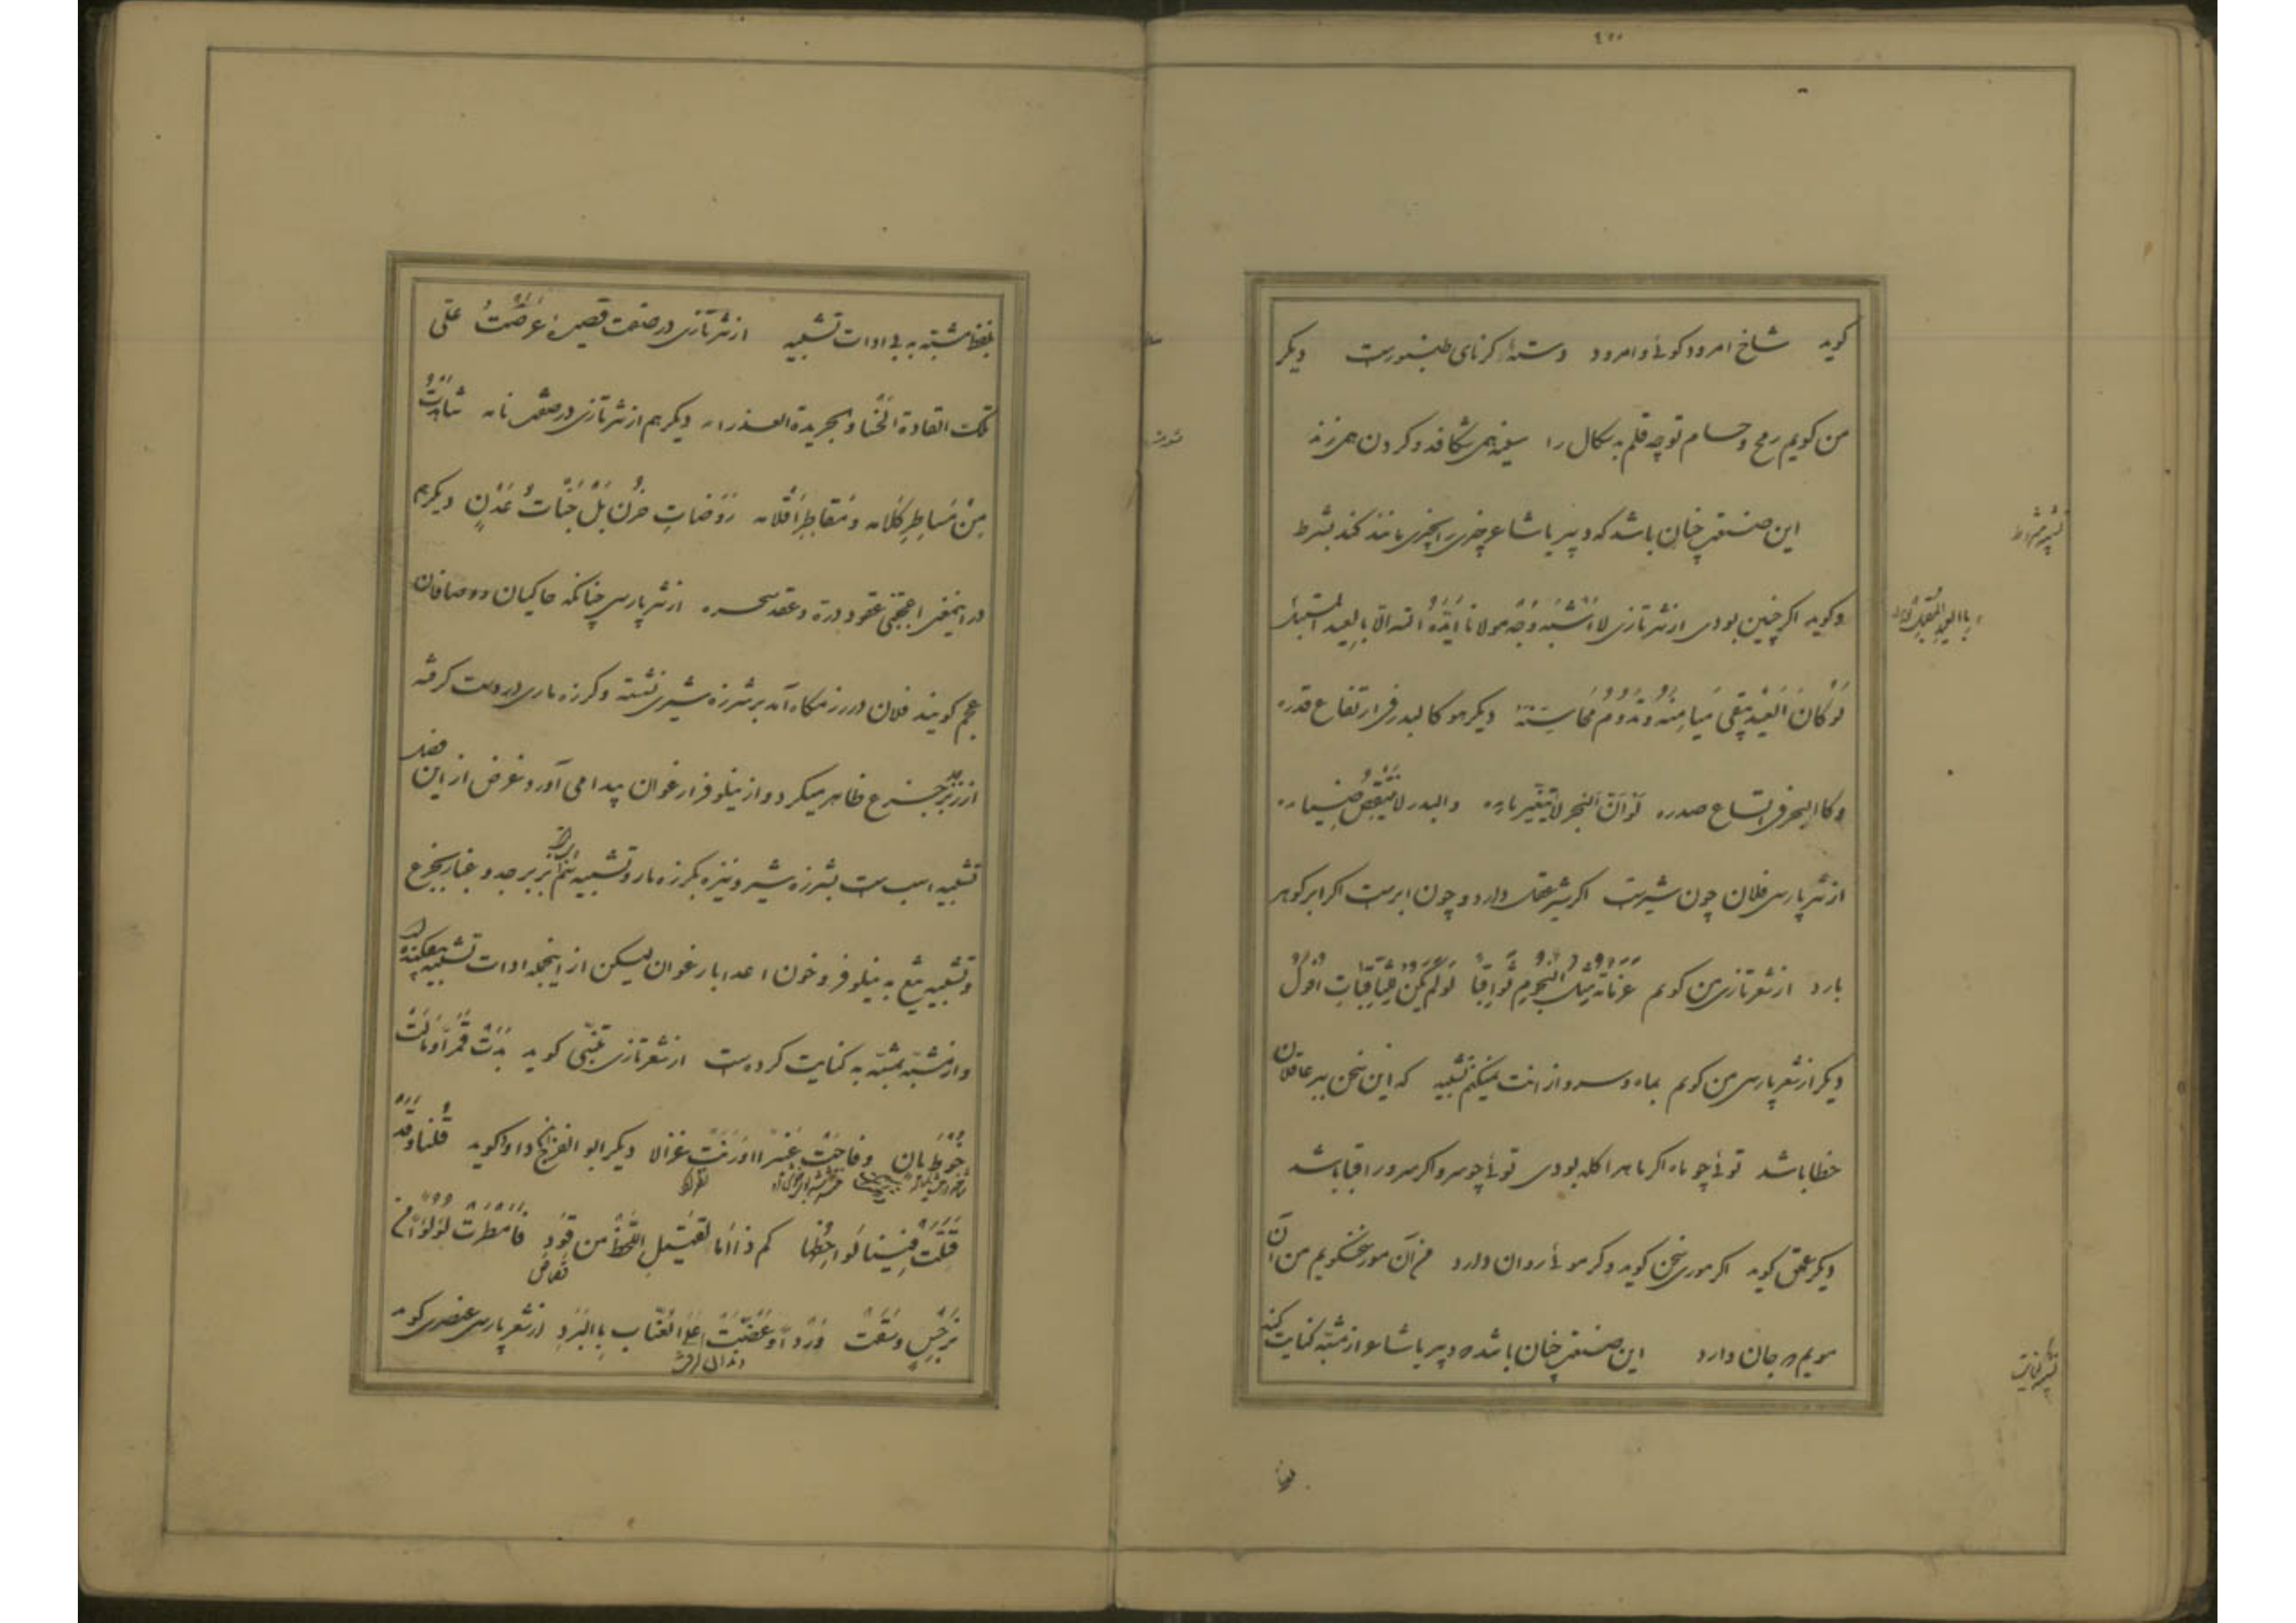 گوید شاخ امرود گوئی و امرود دستهٔ کرنای طنبورست دیگر
من گویم رمح و حسام تو چه قلم بد سگال را سینه همی شکافد و گردن همی زند
این صنعت چنان باشد که دبیر یا شاعر چیزی را بچیزی مانند کند بشرط
و گوید اگر چنین بودی از نثر تازی لا اَشْبَهُ وَجْهَ مولانا اَیَّدَهُ الله الّا بالعید المقبل
لَوْ کَانَ العِیدُ تبقی مَیَامِنُهُ و تَدُومُ مَحَاسِنُهُ دیگر هو کالبدر فی ارتفاع قدره
و کالبحر فی اتساع صدره لَوْ اَنَّ البَحر لا یَتَغَیَّر ماءه والبدر لا یَنْقُصُ ضِیاءه
از نثر پارسی فلان چون شیرست اگر شیر عقل دارد و چون ابرست اگر ابر گوهر
بارد از شعر تازی من گویم عَزَمَاتُهُ مِثْلُ النُّجُومِ ثَوَاقِبًا لَوْ لَمْ یَکُنْ لِلثَّاقِبَاتِ اُفُولُ
دیگر از شعر پارسی من گویم بماه و سرو از انت نمیکنم تشبیه که این سخن بر عاقلان
خطا باشد توئی چو ماه اگر ماه را کله بودی توئی چو سرو اگر سرو را قبا باشد
دیگر عمعق گوید اگر موری سخن گوید و گر موئی روان دارد من آن مور سخنگویم من آن
مویم که جان دارد این صنعت چنان باشد که دبیر یا شاعر از مشبّه کنایت کند
تشبیه مشروط
تشبیه کنایت
بلفظ مشبّه به بی ادات تشبیه از نثر تازی در صفت قصیده عَرَضْتُ عَلَی
تلک الغادة الحسناء و الخریدة العذراء دیگر هم از نثر تازی در صفت نامه شاهدتُ
مِنْ مَسَاطِرِ کلامه و مَقَاطِرِ اَقْلامه رَوْضَاتِ حَزْن بَلْ جَنَّاتِ عَدْنٍ دیگر هم
در این معنی اعجبنی عقود درّه و عقد سحره از نثر پارسی چنانکه حاکیان و وصافان
عجم گویند فلان در رزمگاه آمد بر شرزه شیری نشسته و گرزه ماری در دست گرفته
از زبرجد جزع ظاهر میکرد و از نیلوفر ارغوان پیدا می آورد و غرض از این فصل
تشبیه اسب ست بشرزه شیر و نیزه بگرزه مار و تشبیه سم بزبرجد و غبار بجزع
و تشبیه تیغ به نیلوفر و خون اعدا بارغوان لیکن از اینجمله ادات تشبیه بیفکنده
و از مشبّه بمشبّه به کنایت کرده ست از شعر تازی متنبّی گوید بَدَتْ قَمَرًا وَ مَالَتْ
خُوْطَ بَانٍ و فاحَتْ عَنْبرًا وَ رَنَتْ غزالا دیگر ابو الفرج داوا گوید قُلْنا وَ قَدْ
قَتَلَتْ فِینا لَوَاحِظُها کم ذا اَمَا لقتیلِ اللَّحْظِ من قَوَدِ فَاَمْطَرَتْ لُؤْلُؤًا مِنْ
قصاص
نَرْجِسٍ وَ سَقَتْ وَرْدًا وَ عَضَّتْ عَلَی العُنَّابِ بِالبَرَدِ از شعر پارسی عنصری گوید